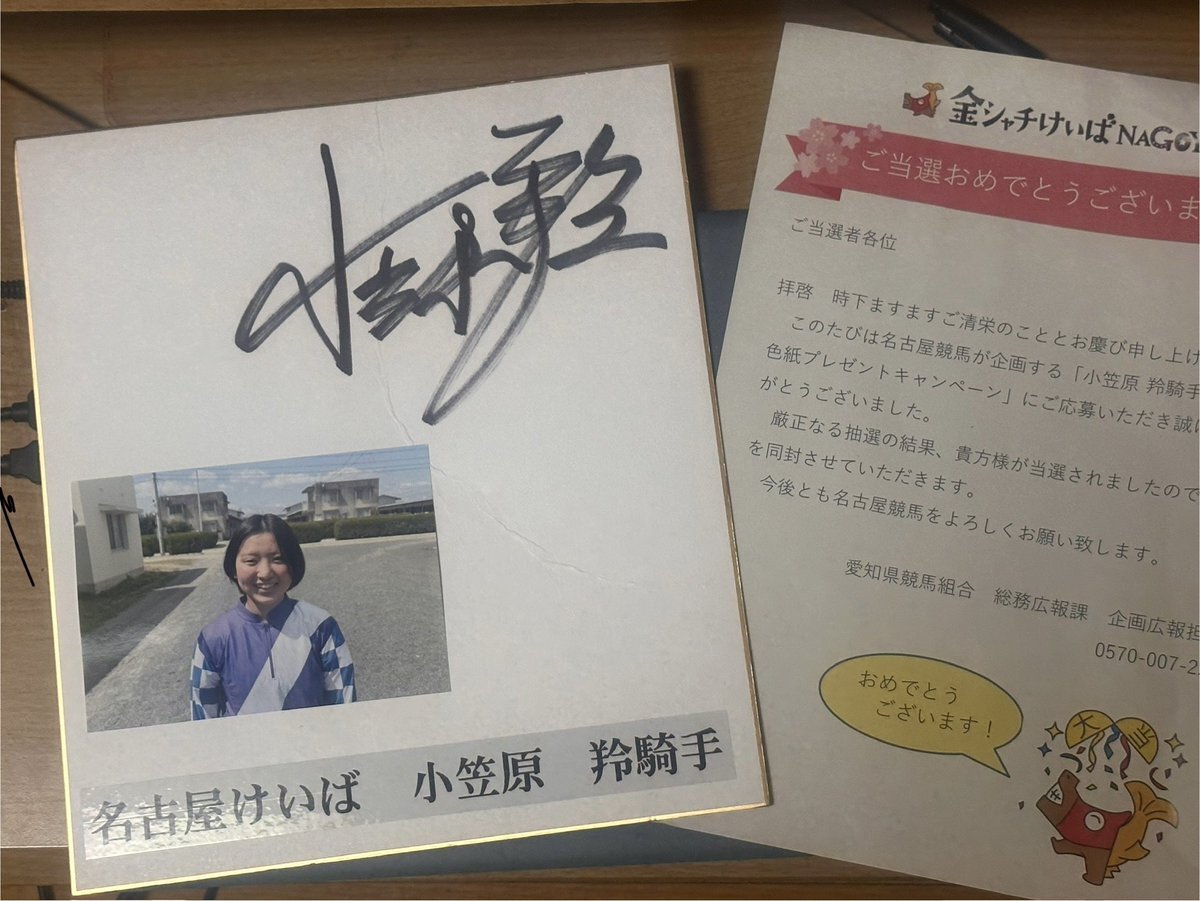 名古屋けいば 小笠原 羚騎手
金シャチけいば NAGO
ご当選おめでとうございま
ご当選者各位
拝啓 時下ますますご清栄のこととお慶び申し上げ
このたびは名古屋競馬が企画する「小笠原 羚騎手
色紙プレゼントキャンペーン」にご応募いただき誠に
がとうございました。
厳正なる抽選の結果、貴方様が当選されましたので
を同封させていただきます。
今後とも名古屋競馬をよろしくお願い致します。
愛知県競馬組合 総務広報課 企画広報担
0570-007-2
おめでとう
ございます!
大当